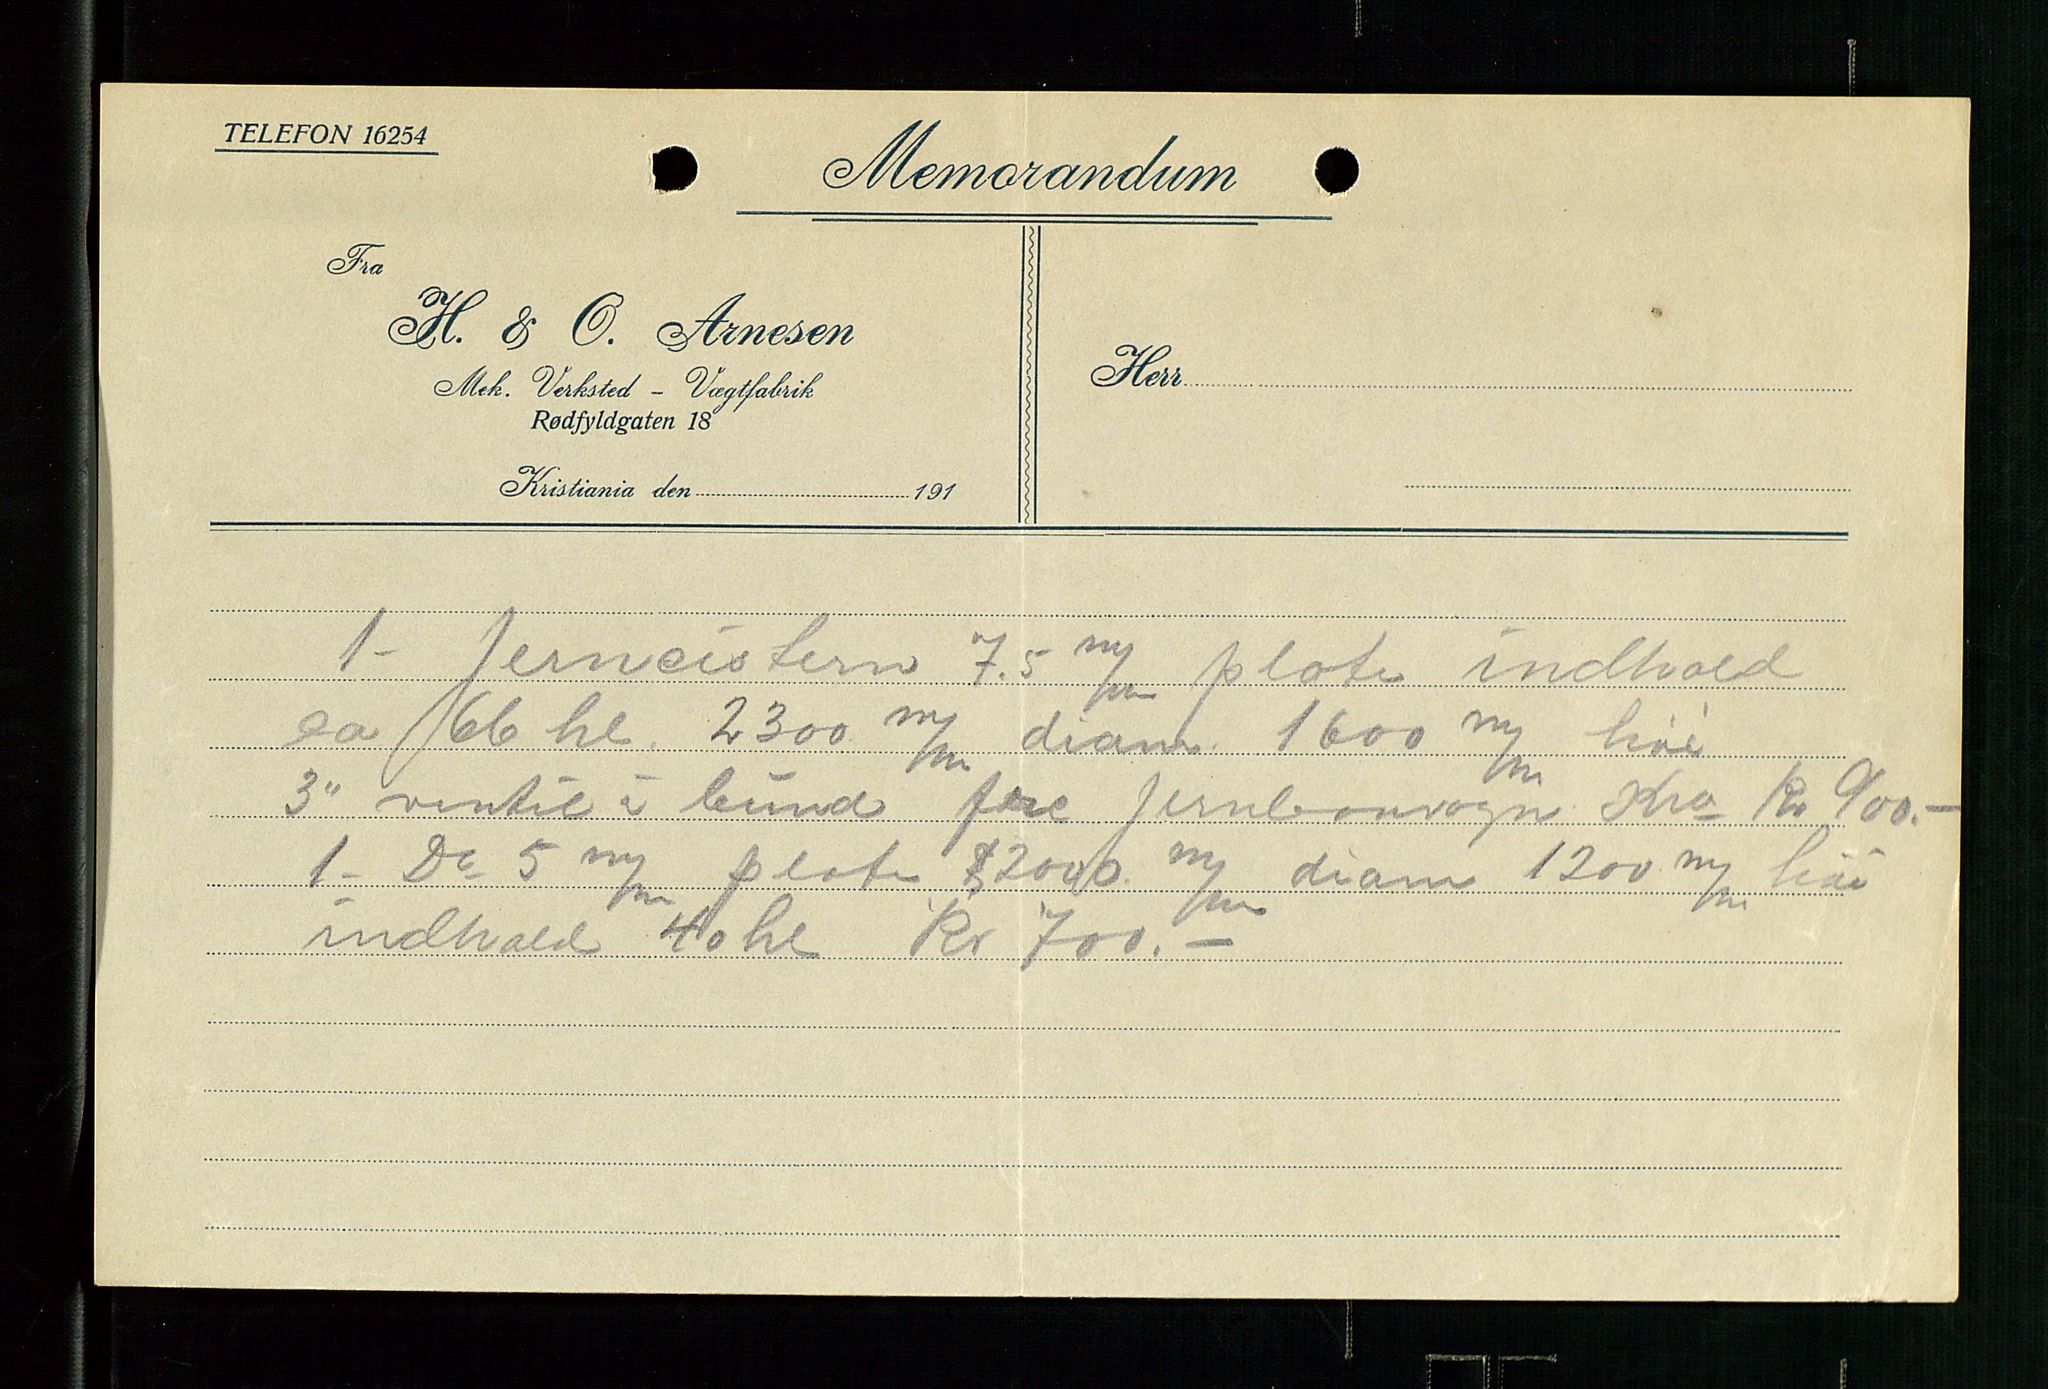 TELEFON 16254
Memorandum
Fra
H. & O. Arnesen
Mek. Verksted - Vægtfabrik
Rødfyldgaten 18
Kristiania den 191
Herr
1 - Jerncistern 7.5 m/m plate indhold
ca 66 hl. 2300 m/m diam. 1600 m/m høi
3" ventil i bund Jernbanvogn Kra Kr 900.-
1 - Do 5 m/m plate 2000 m/m diam 1200 m/m høi
indhold 40 hl Kr 700.-